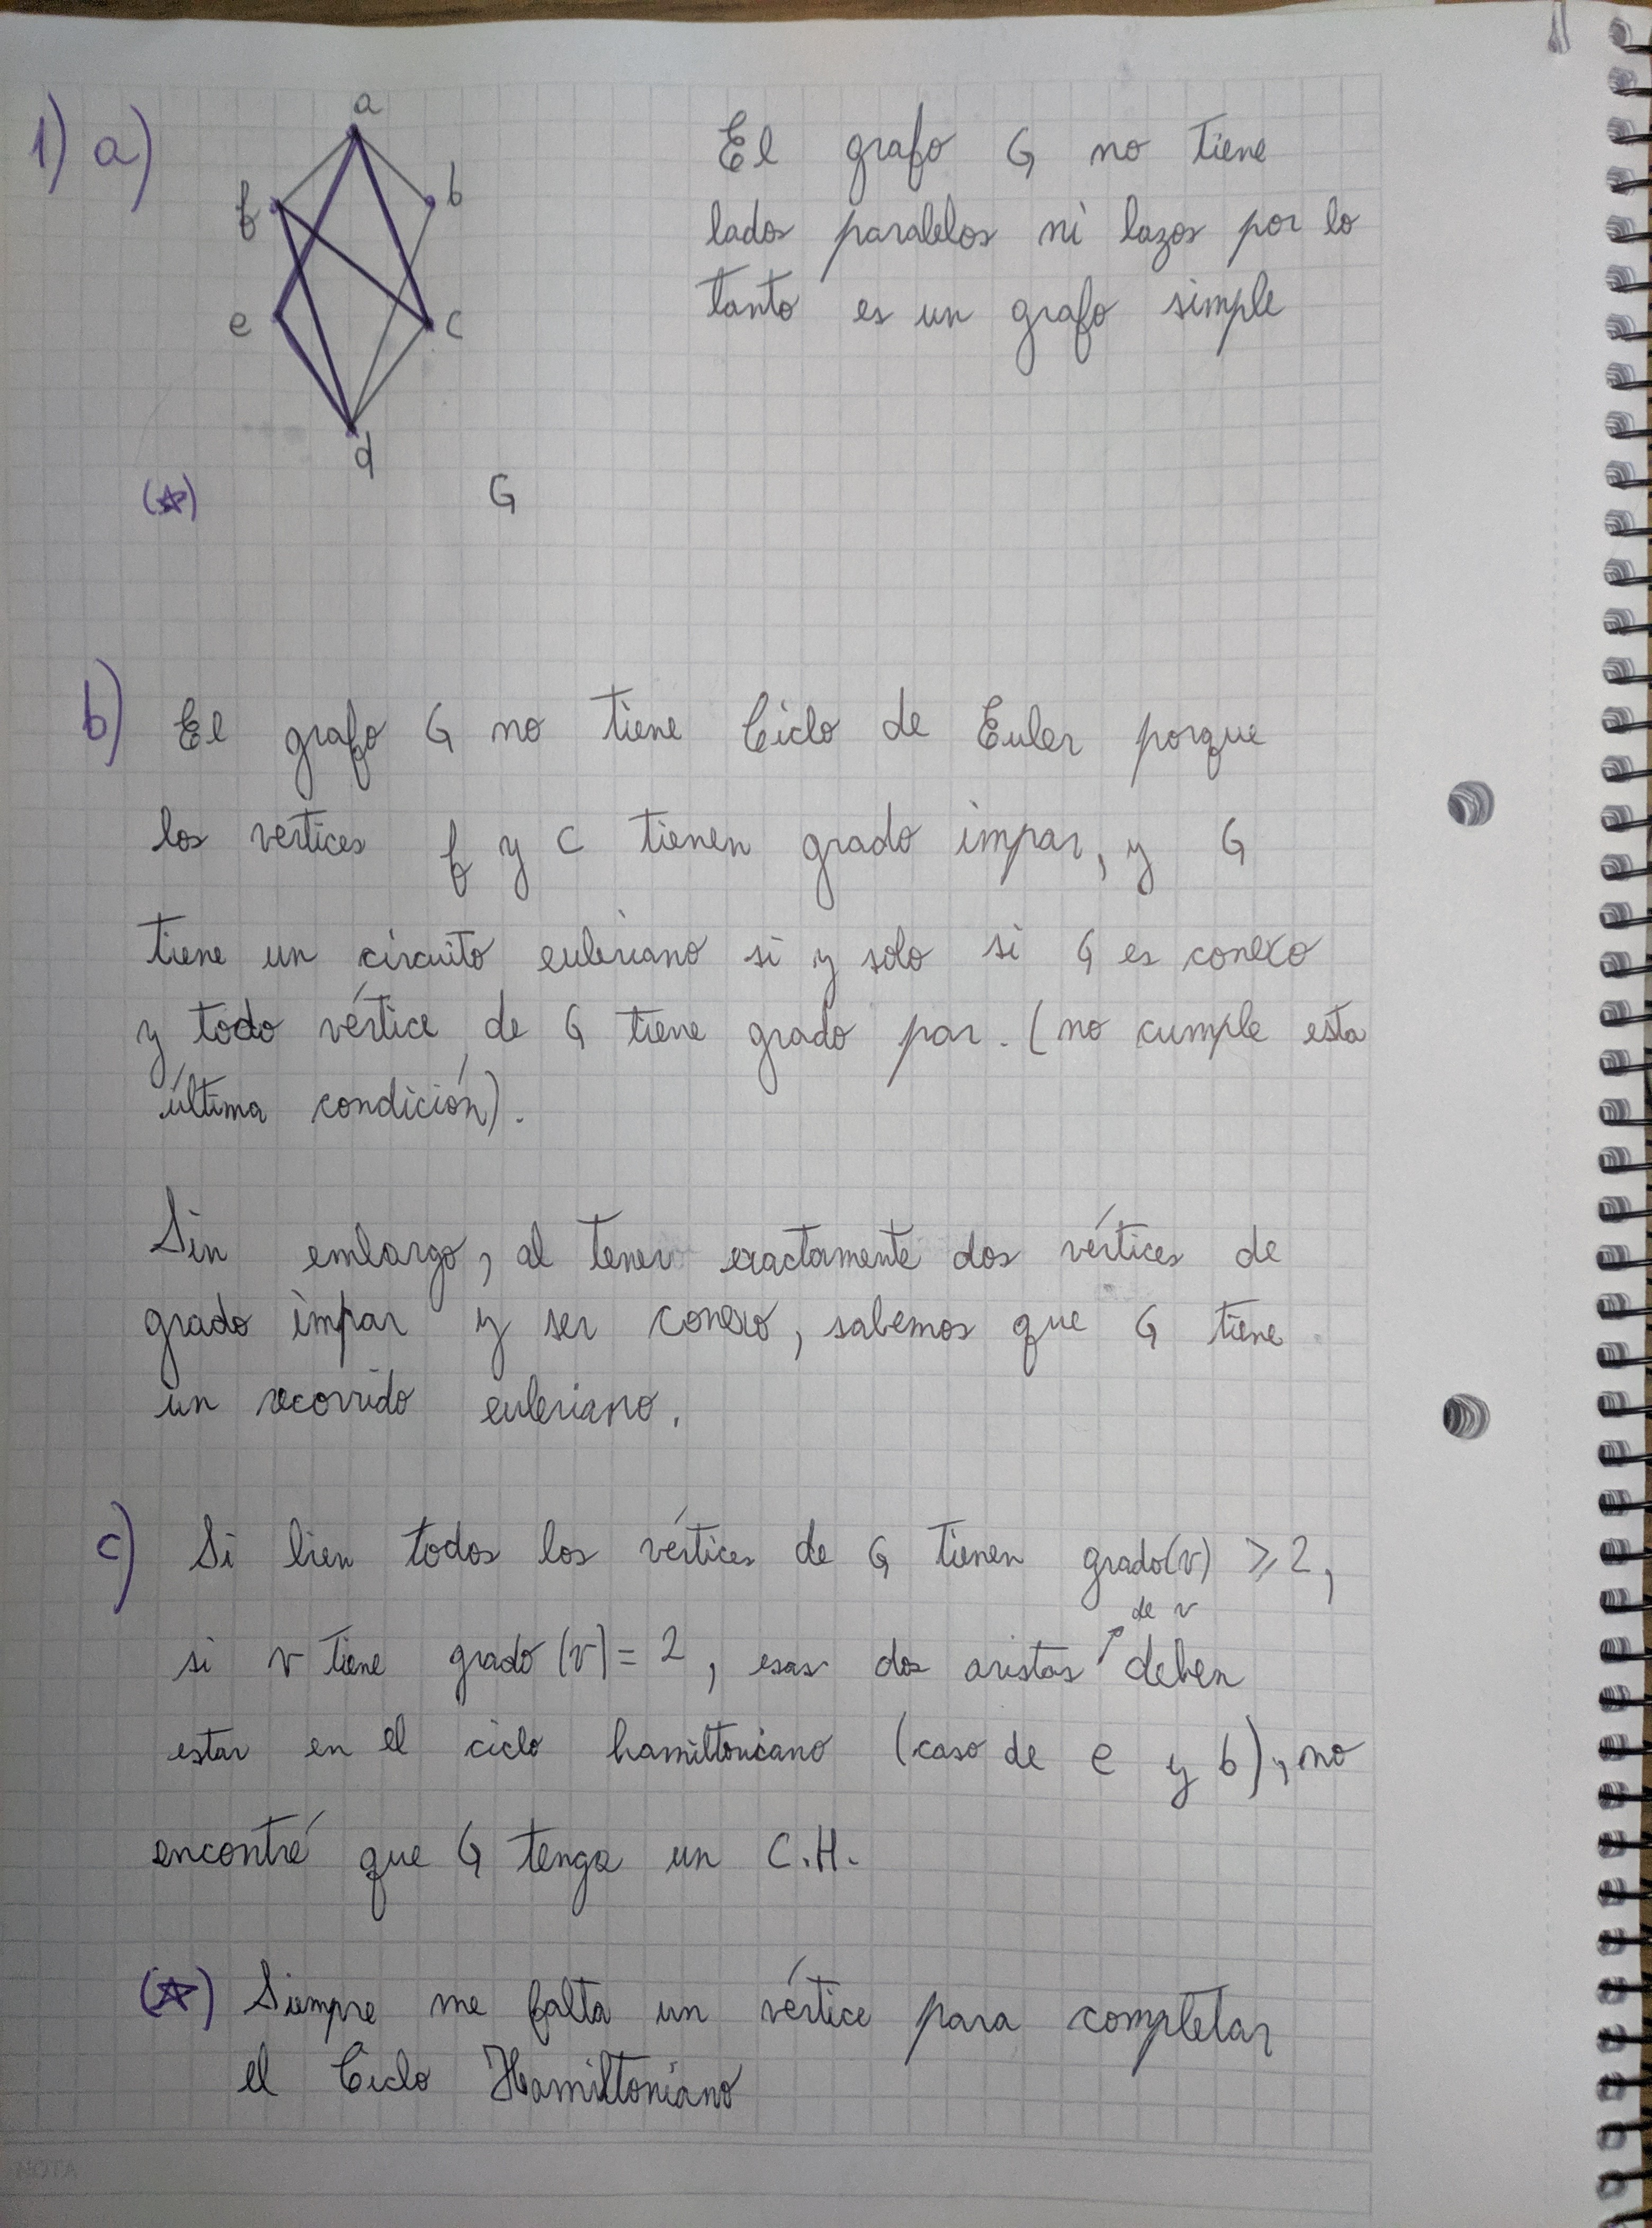 1) a)
a
f
b
e
c
d
G
El grafo G no tiene
lados paralelos ni lazos por lo
tanto es un grafo simple
(☆)
b) El grafo G no tiene Ciclo de Euler porque
los vertices f y c tienen grado impar, y G
tiene un circuito euleriano si y solo si G es conexo
y todo vértice de G tiene grado par. (no cumple esta
última condición).
Sin embargo, al tener exactamente dos vértices de
grado impar y ser conexo, sabemos que G tiene
un recorrido euleriano.
c) Si bien todos los vértices de G tienen grado(v) ≥ 2,
de v
si v tiene grado (v) = 2, esas dos aristas deben
estar en el ciclo hamiltoniano (caso de e y b), no
encontré que G tenga un C.H.
(☆) Siempre me falta un vértice para completar
el Ciclo Hamiltoniano
NOTA